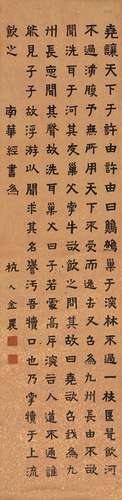 堯讓天下于許由許由曰鷦鷯巢于深林不過一枝匽鼠飲河
不過滿腹予無所用天下不受而逃去堯又召為九州長由不欲
聞洗耳于河其友巢父牽牛欲飲之問其故曰堯欲召我為九
州長惡聞其聲故洗耳巢父曰子若處高岸深谷人道不通誰
能見子子故浮游以聞求其名譽汚吾犢口也乃牽犢于上流
飲之 南華經書為 杭人金農